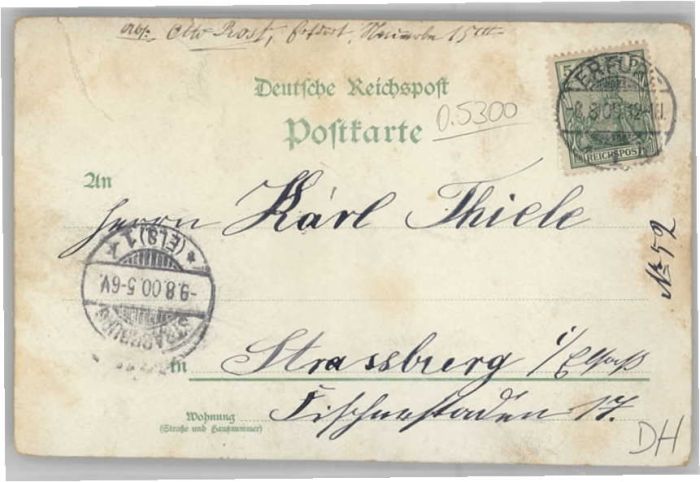 Otto Rost, Erfurt, 15III
Deutsche Reichspost
Postkarte
0.5300
ERFURT
8.00
1
REICHSPOST
An
Herrn Karl Thiele
No 52
STRASSBURG
-9.8.00.5-6V.
* (ELS) 1 *
In Strassburg i/Elsaß
Wohnung Fischerstaden 17.
(Straße und Hausnummer)
DH